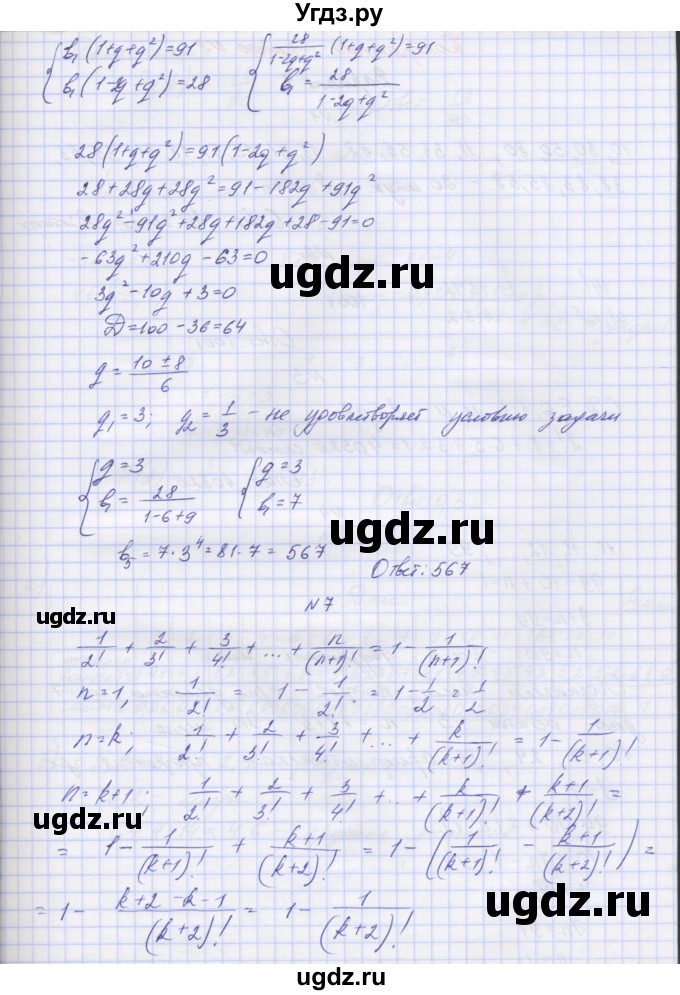 Угдз.ру
{ b₁(1+q+q²)=91    { 28/(1-2q+q²) (1+q+q²)=91
{ b₁(1-2q+q²)=28    { b₁ = 28/(1-2q+q²)
28(1+q+q²)=91(1-2q+q²)
28+28q+28q²=91-182q+91q²
28q²-91q²+28q+182q+28-91=0
-63q²+210q-63=0
ugdz.ru
3q²-10q+3=0
ugdz.ru
D=100-36=64
q = (10±8)/6
q₁=3; q₂=1/3 - не удовлетворяет условию задачи
{ q=3    { q=3
{ b₁ = 28/(1-6+9)    { b₁=7
ugdz.ru
b₅ = 7·3⁴ = 81·7 = 567
Ответ: 567
ugdz.ru
N7
1/2! + 2/3! + 3/4! + ... + n/(n+1)! = 1 - 1/(n+1)!
ugdz.ru
n=1, 1/2! = 1 - 1/2! = 1 - 1/2 = 1/2
n=k; 1/2! + 2/3! + 3/4! + ... + k/(k+1)! = 1 - 1/(k+1)!
n=k+1; 1/2! + 2/3! + 3/4! + ... + k/(k+1)! + (k+1)/(k+2)! =
ugdz.ru
= 1 - 1/(k+1)! + (k+1)/(k+2)! = 1 - (1/(k+1)! - (k+1)/(k+2)!) =
= 1 - (k+2-k-1)/(k+2)! = 1 - 1/(k+2)!
ugdz.ru
ugdz.ru